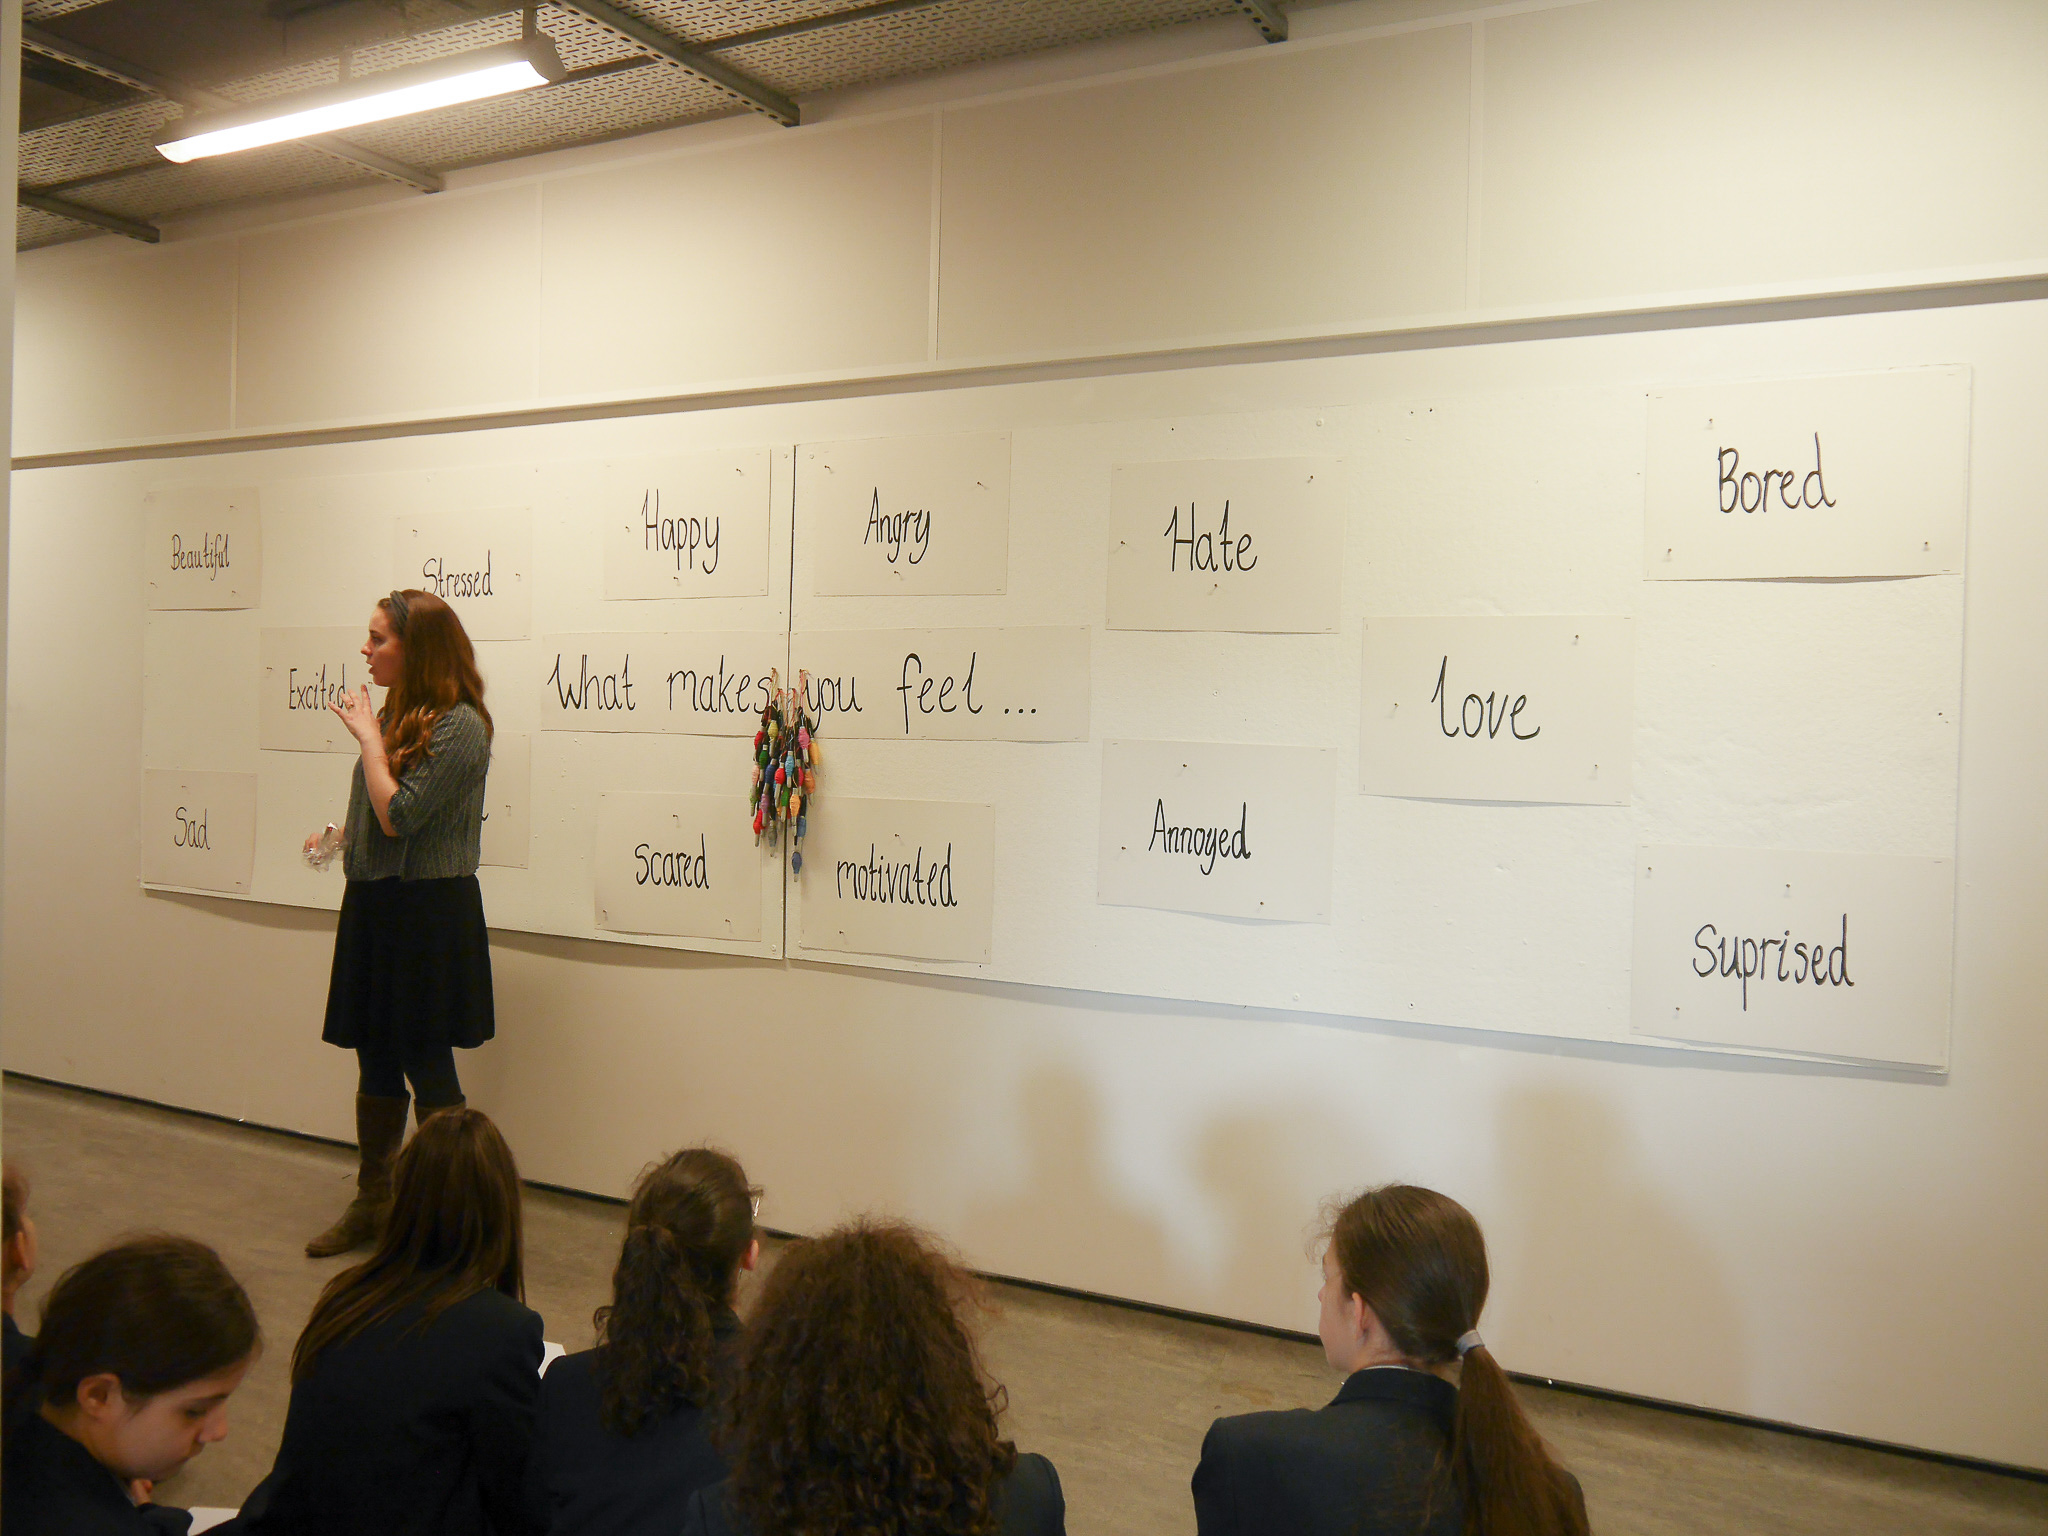 Beautiful
Stressed
Happy
Angry
Hate
Bored
Excited
What makes you feel ...
Love
Sad
Scared
motivated
Annoyed
Suprised